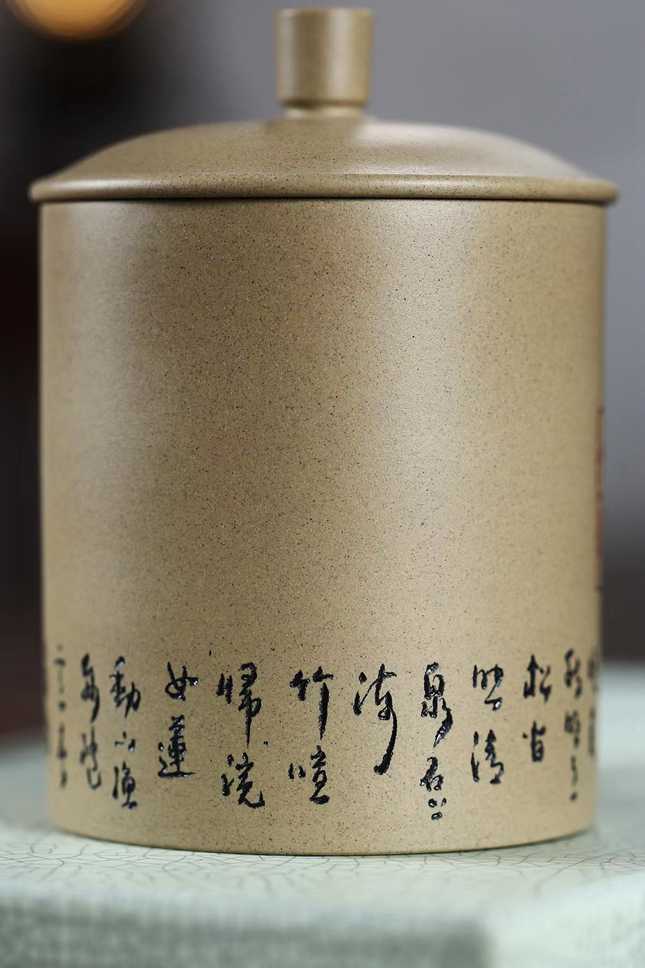 秋明月
松間
照清
泉石上
流
竹喧
歸浣
女蓮
動下漁
舟隨
意春